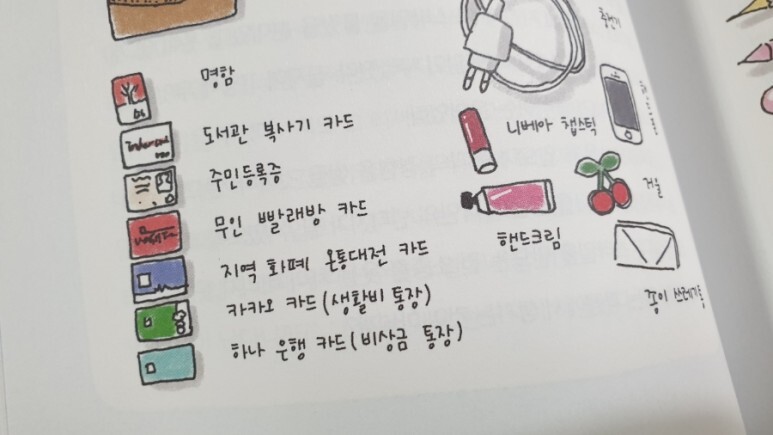 명함
도서관 복사기 카드
주민등록증
무인 빨래방 카드
지역 화폐 온통대전 카드
카카오 카드(생활비 통장)
하나 은행 카드(비상금 통장)
충전기
니베아 챕스틱
거울
핸드크림
종이